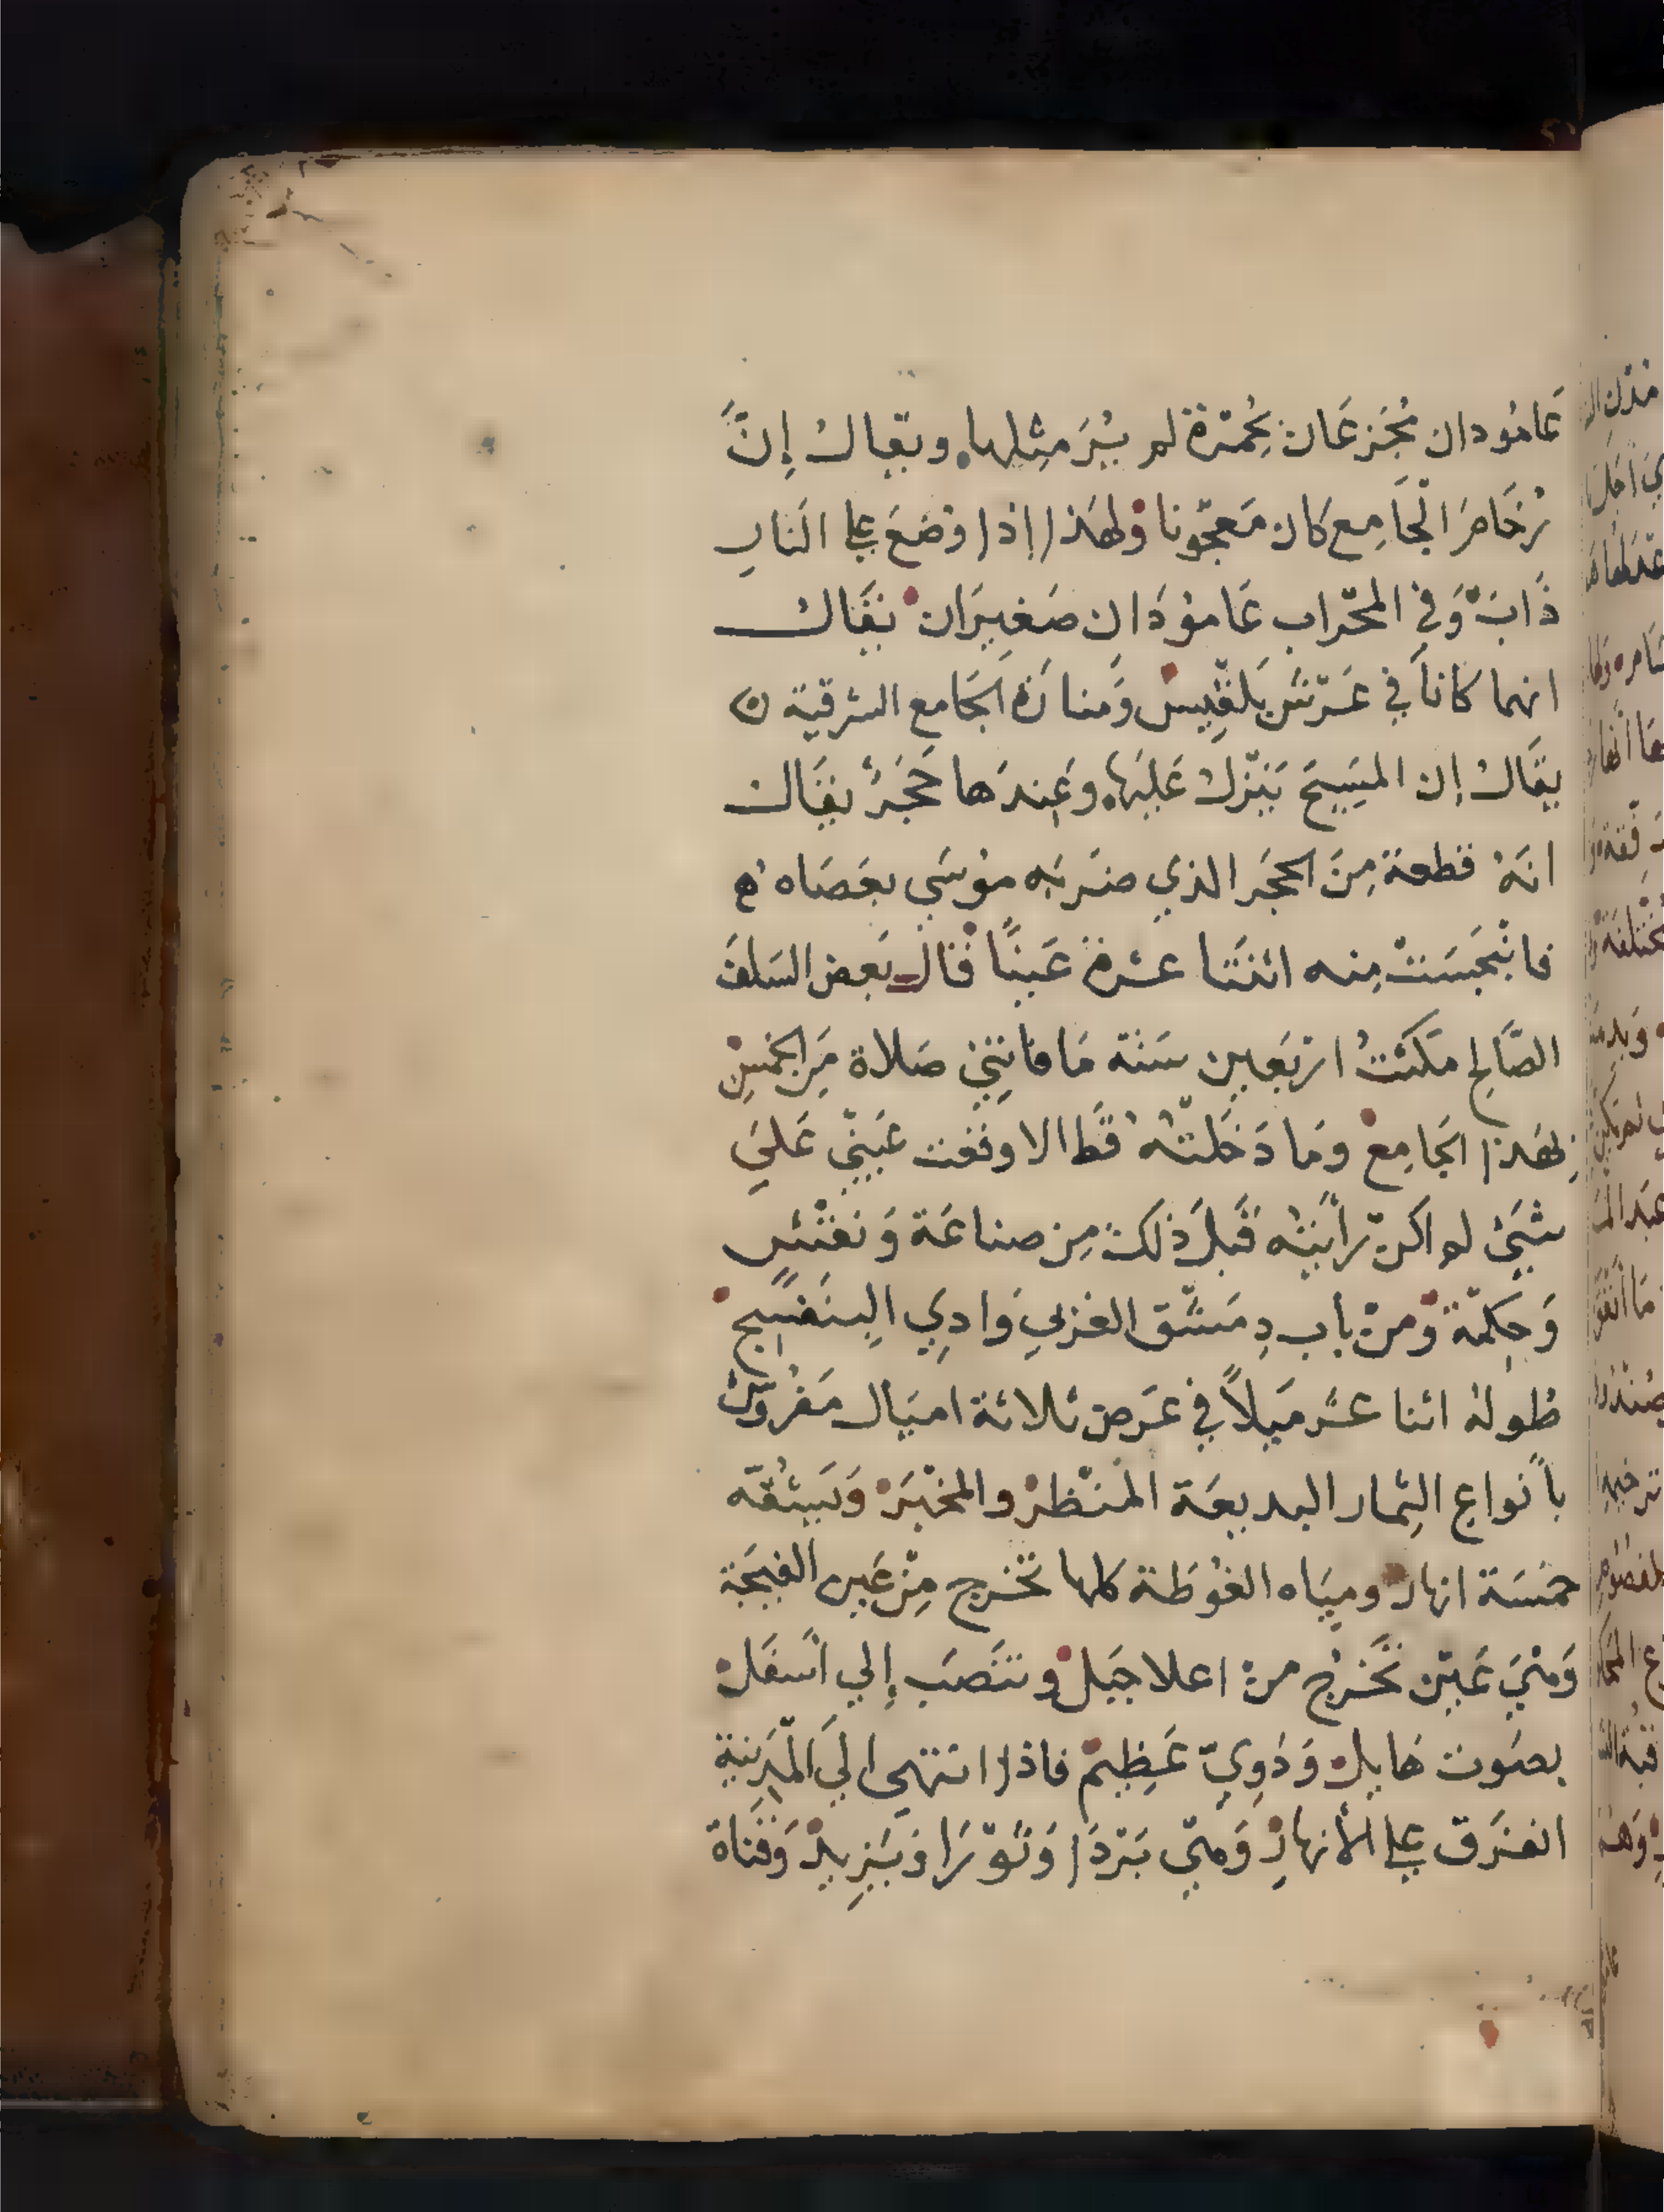 عَامُودان مُجَزعَان بِحُمْرَة لم يُرَ مثِلها. ويقال إِنَّ
رُخَامَ الْجَامِع كان مَعجُونا ولهَذا إذا وُضعَ علي النارِ
ذَابَ وَفي المحْراب عَاموُدَان صَغيِرَان يقَال
انهما كانَا في عَرْش بَلقِيس وَمنارَة الجَامع الشرقية ه
يقَال إن المسَيِحَ يَنْزل عَليَها. وعَندَها حَجَرٌ يقَال
انَهُ قطعة مِنَ الحجَر الذي ضَربَه موُسَي بعَصَاه ه
فانْبَجَسَتْ مِنه اثنَتَا عشرة عَينًا قال بَعض السَلفَ
الصَّالح مَكثتُ ارْبَعين سَنَة مَا فاتتني صَلاة مَن الخمْسِ
بِهَذا الجَامِع وَما دَخَلتُه قَط الا وقعَت عَيْنِي عَليَ
شَيْءٍ لم اكنْ رَأيْتُه قَبلَ ذلكَ مِن صناعَة وَنقْشٍ
وَحِكمْة وَمنْ باب دِمَشْق الغَربي وَادِي البنَفْسج
طُولهُ اثنا عشَر مَيلاً في عَرض ثلاثة اميَال مَفرُوشٌ
بأنواع الثِمار البديعَة المنْظرْ والمخْبَرْ وَيَشُقّه
خمسَة انهار وميَاه الغُوطَة كلها تخَرج مِنْ عَين الفيجَة
وَهيَ عَيْن تخَرج من اعلا جبَل وتنَصَب إِلي اسَفَل
بصَوت هَايلٍ وَدَوِيّ عَظِيم فاذا انتهى الَي الْمَدِينة
افترَق علي الأنهار وَهيَ بَرْدَا وَثَوْرَا وَيَزِيدْ وَقنَاة